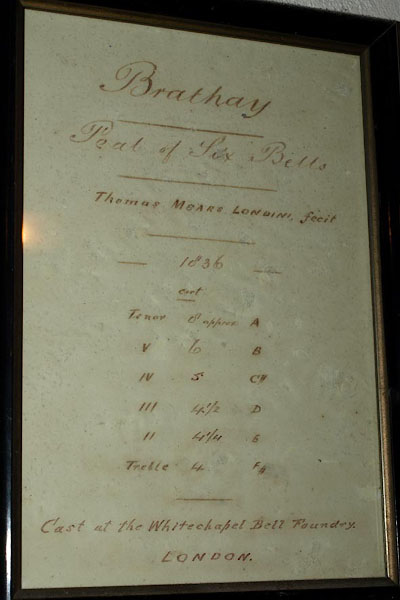 Brathay
Peal of Six Bells
Thomas MEARS LONDINI, fecit
— 1836 —
cwt
Tenor 8 approx A
V 6 B
IV 5 C#
III 4 1/2 D
II 4 1/4 E
Treble 4 F#
Cast at the Whitechapel Bell Foundry.
LONDON.